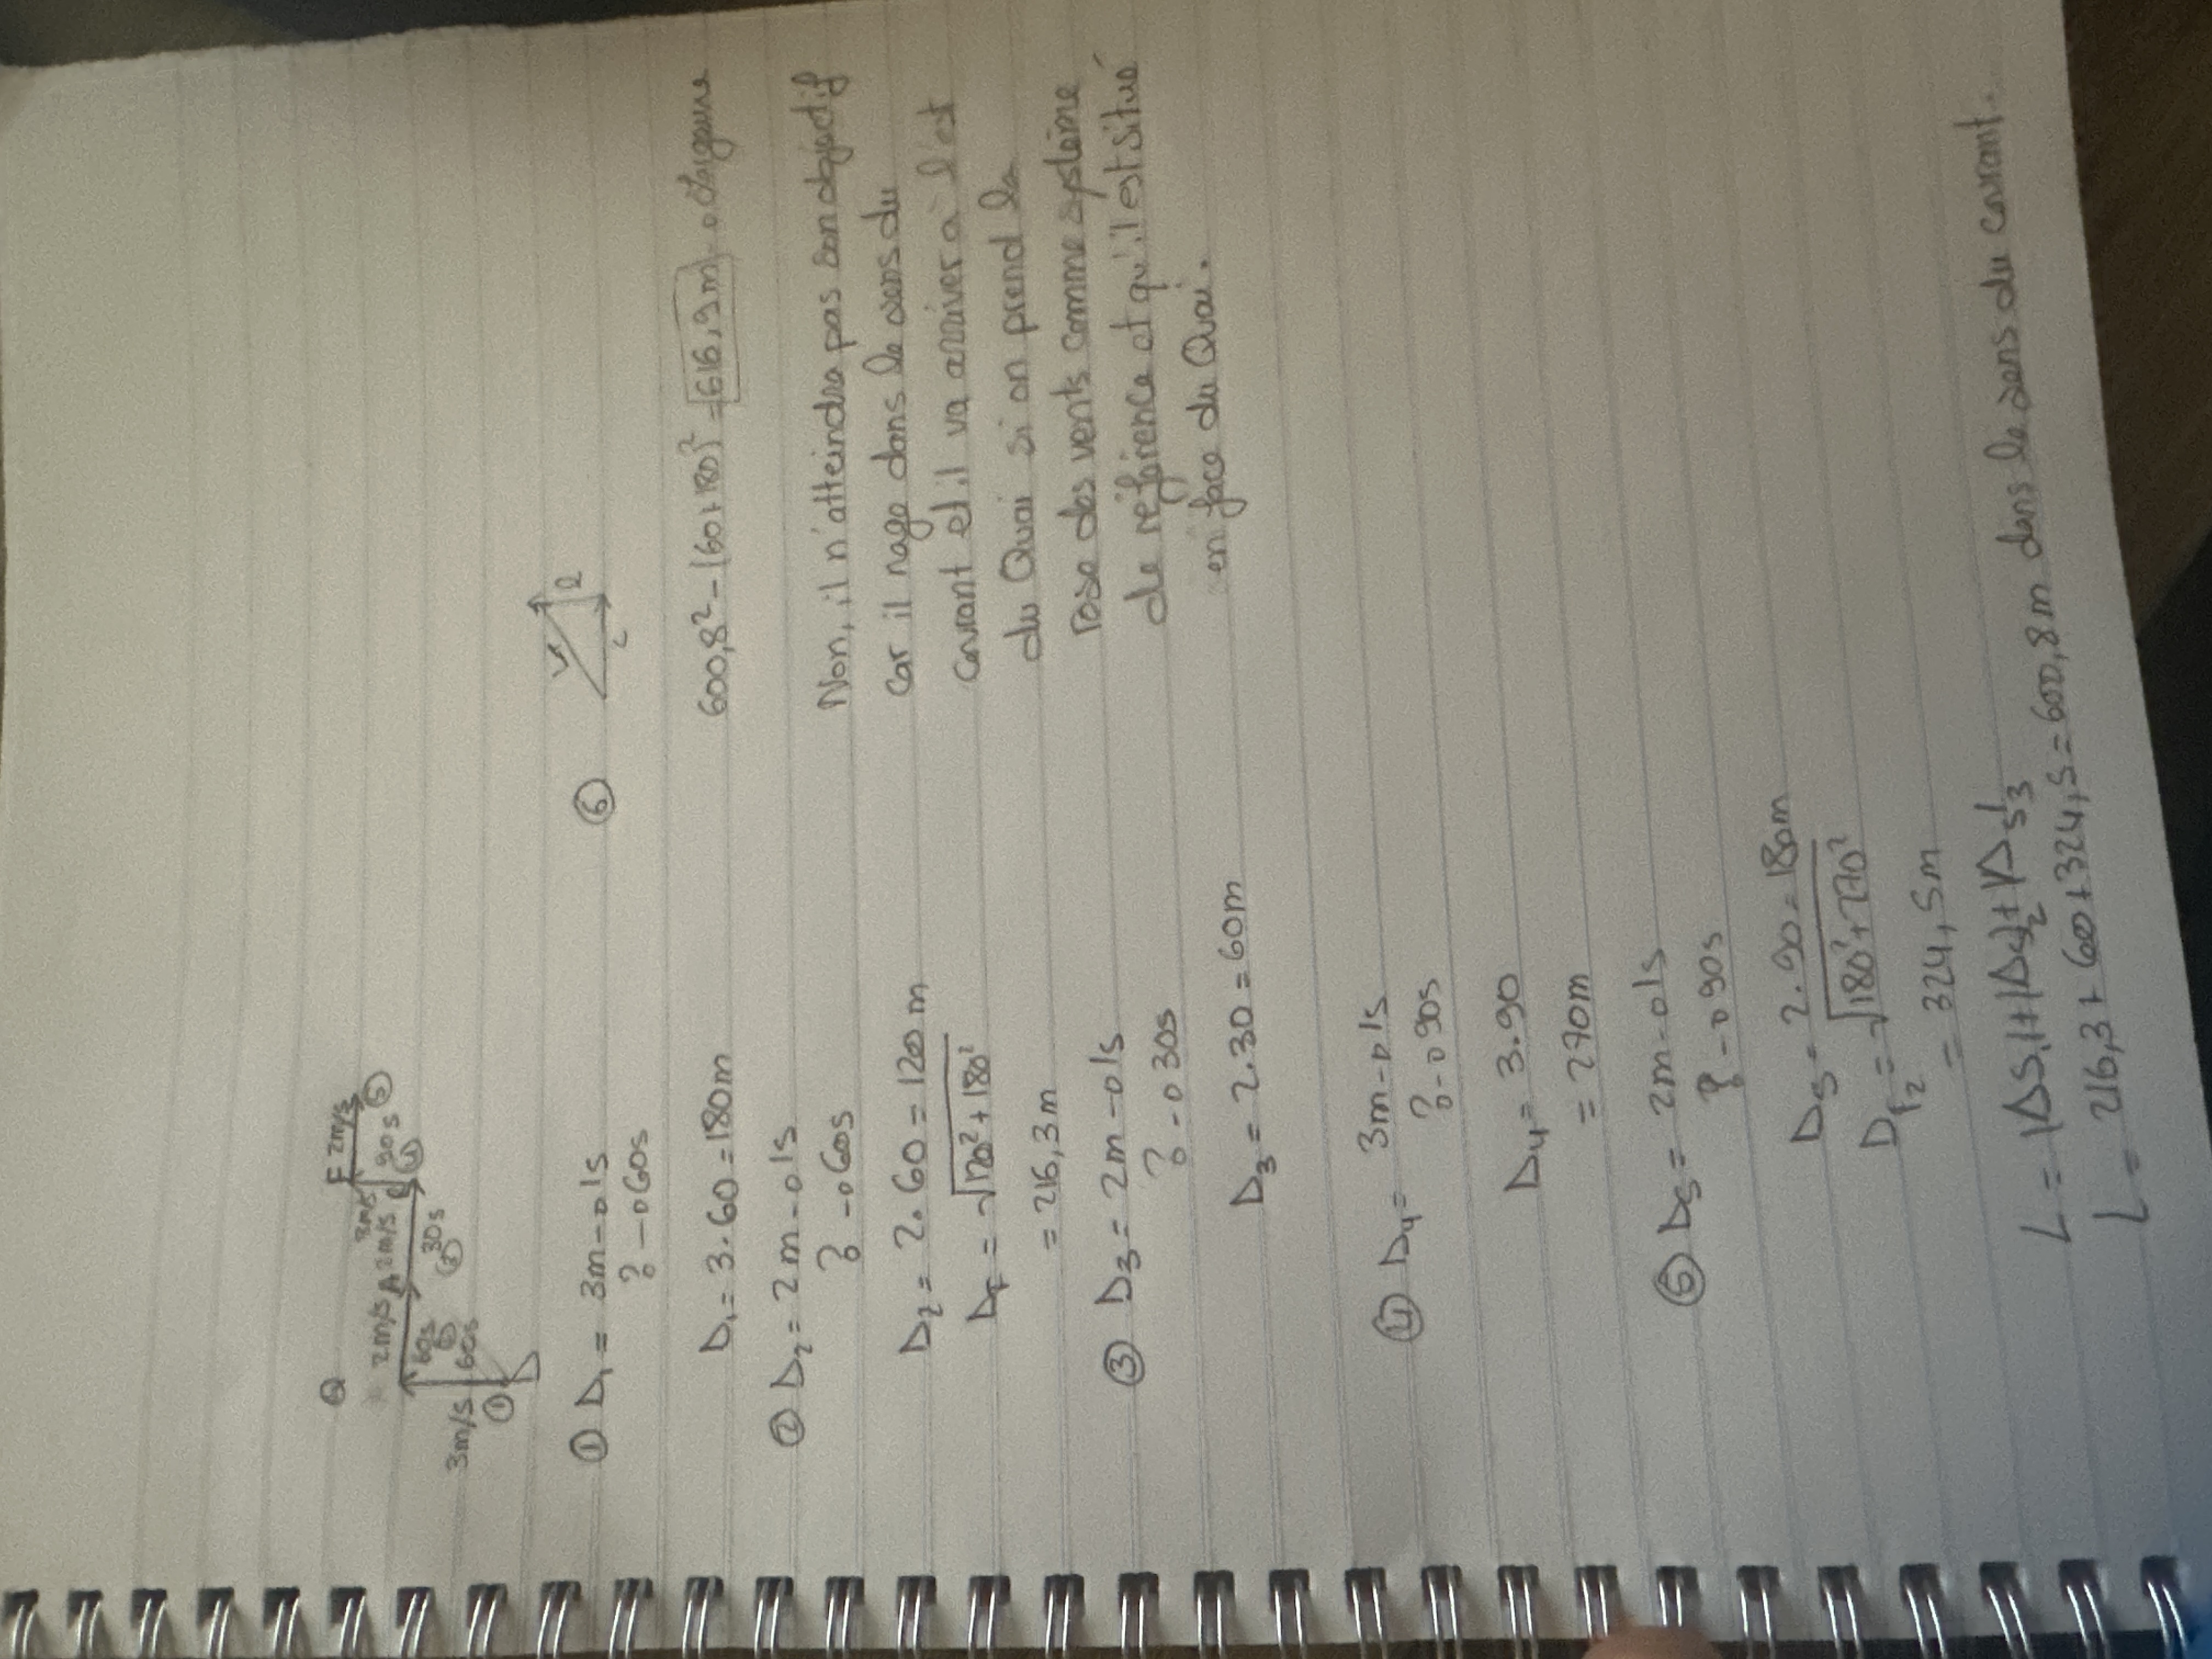 Q
2m/s A 2m/s 3m/s F 2m/s
60s ② 30s ③ 90s ④ ⑤
3m/s ① 60s
D
① D₁ = 3m → 1s
? → 60s
D₁ = 3.60 = 180m
② D₂ = 2m → 1s
? → 60s
D₂ = 2.60 = 120m
Dr = √120² + 180²
= 216,3m
③ D₃ = 2m → 1s
? → 30s
D₃ = 2.30 = 60m
④ D₄ = 3m → 1s
? → 90s
D₄ = 3.90
= 270m
⑤ D₅ = 2m → 1s
? → 90s
D₅ = 2.90 = 180m
Dr₂ = √180² + 270²
= 324,5m
L = |ΔS₁| + |ΔS₂| + |ΔS₃|
L = 216,3 + 60 + 324,5 = 600,8m dans le sens du courant.
⑥
L
600,8² - (60 + 180)² = 616,9m → Largeure
Non, il n'atteindra pas son objectif
car il nage dans le sens du
courant et il va arriver à l'est
du Quai si on prend la
rose des vents comme système
de référence et qu'il est situé
en face du Quai.